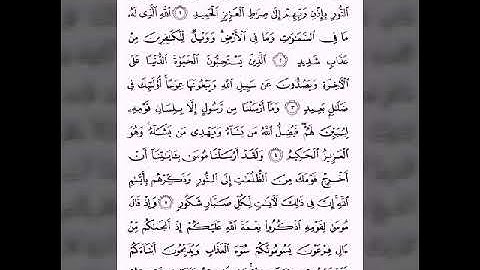 ٱلنُّورِ بِإِذْنِ رَبِّهِمْ إِلَىٰ صِرَٰطِ ٱلْعَزِيزِ ٱلْحَمِيدِ ١ ٱللَّهِ ٱلَّذِى لَهُۥ
مَا فِى ٱلسَّمَٰوَٰتِ وَمَا فِى ٱلْأَرْضِ وَوَيْلٌ لِّلْكَٰفِرِينَ مِنْ
عَذَابٍ شَدِيدٍ ٢ ٱلَّذِينَ يَسْتَحِبُّونَ ٱلْحَيَوٰةَ ٱلدُّنْيَا عَلَى
ٱلْأٓخِرَةِ وَيَصُدُّونَ عَن سَبِيلِ ٱللَّهِ وَيَبْغُونَهَا عِوَجًا أُو۟لَٰٓئِكَ فِى
ضَلَٰلٍۭ بَعِيدٍ ٣ وَمَآ أَرْسَلْنَا مِن رَّسُولٍ إِلَّا بِلِسَانِ قَوْمِهِۦ
لِيُبَيِّنَ لَهُمْ فَيُضِلُّ ٱللَّهُ مَن يَشَآءُ وَيَهْدِى مَن يَشَآءُ وَهُوَ
ٱلْعَزِيزُ ٱلْحَكِيمُ ٤ وَلَقَدْ أَرْسَلْنَا مُوسَىٰ بِـَٔايَٰتِنَآ أَنْ
أَخْرِجْ قَوْمَكَ مِنَ ٱلظُّلُمَٰتِ إِلَى ٱلنُّورِ وَذَكِّرْهُم بِأَيَّىٰمِ
ٱللَّهِ إِنَّ فِى ذَٰلِكَ لَأٓيَٰتٍ لِّكُلِّ صَبَّارٍ شَكُورٍ ٥ وَإِذْ قَالَ
مُوسَىٰ لِقَوْمِهِ ٱذْكُرُوا۟ نِعْمَةَ ٱللَّهِ عَلَيْكُمْ إِذْ أَنجَىٰكُم مِّنْ
ءَالِ فِرْعَوْنَ يَسُومُونَكُمْ سُوٓءَ ٱلْعَذَابِ وَيُذَبِّحُونَ أَبْنَآءَكُمْ